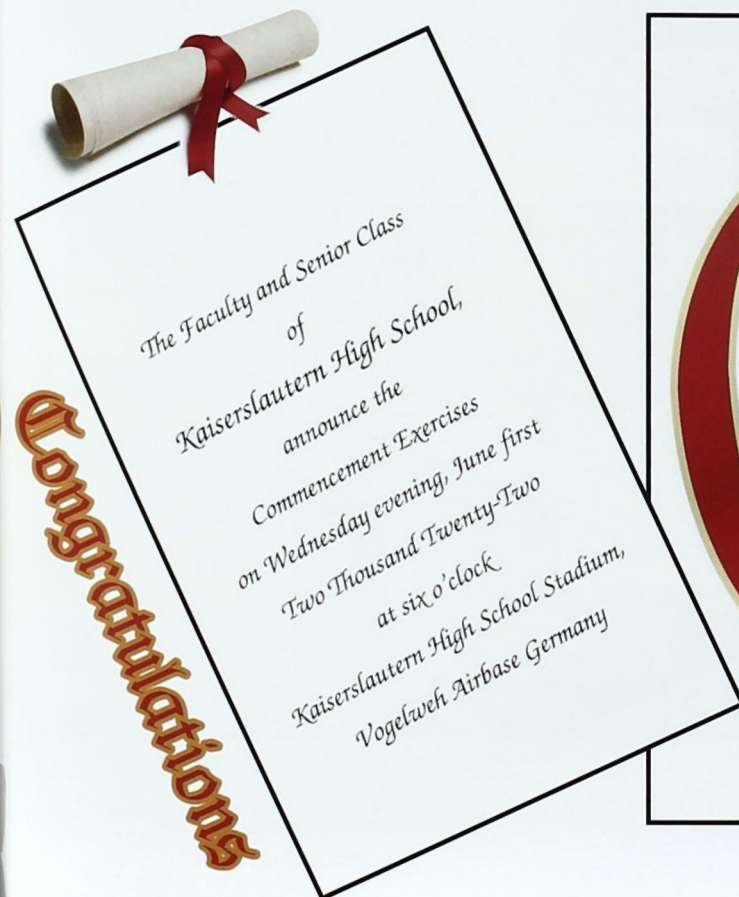 The Faculty and Senior Class
of
Kaiserslautern High School,
announce the
Commencement Exercises
on Wednesday evening, June first
Two Thousand Twenty-Two
at six o'clock
Kaiserslautern High School Stadium,
Vogelweh Airbase Germany
Congratulations